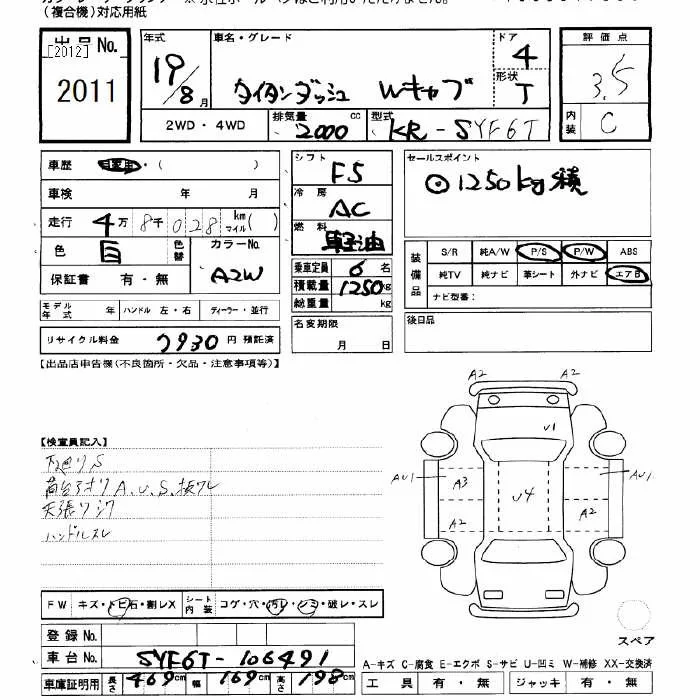 (複合機)対応用紙
出品No.
[2012]
2011
年式 19/8月
車名・グレード
タイタンダッシュ Wキャブ
ドア 4
形状 T
評価点
3.5
内装 C
2WD・4WD
排気量 2000 cc
型式 KR-SYF6T
車歴 自家用・( )
車検 年 月
走行 4万8千028 km マイル( )
色 白 色替 カラーNo. A2W
保証書 有・無
シフト F5
冷房 AC
燃料 軽油
乗車定員 6名
積載量 1250kg
総重量 kg
セールスポイント
⊙1250kg積
装備品
S/R 純A/W P/S P/W ABS
純TV 純ナビ 革シート 外ナビ エアB
ナビ型番:
モデル年式 年 ハンドル 左・右 ディーラー・並行
名変期限 月 日
後日品
リサイクル料金 7930円 預託済
【出品店申告欄(不良箇所・欠品・注意事項等)】
【検査員記入】
下廻りS
荷台アオリA.U.S.板ワレ
天張りシワ
ハンドルスレ
A2 A2
U1
AU1 A3 U4 AU1
A2 A2
FW キズ・トビ石・割レX
シート内装 コゲ・穴・汚レ・シミ・破レ・スレ
スペア
登録No.
車台No. SYF6T-106491
車庫証明用 長さ 469cm 幅 169cm 高さ 198cm
A-キズ C-腐食 E-エクボ S-サビ U-凹ミ W-補修 XX-交換済
工具 有・無 ジャッキ 有・無